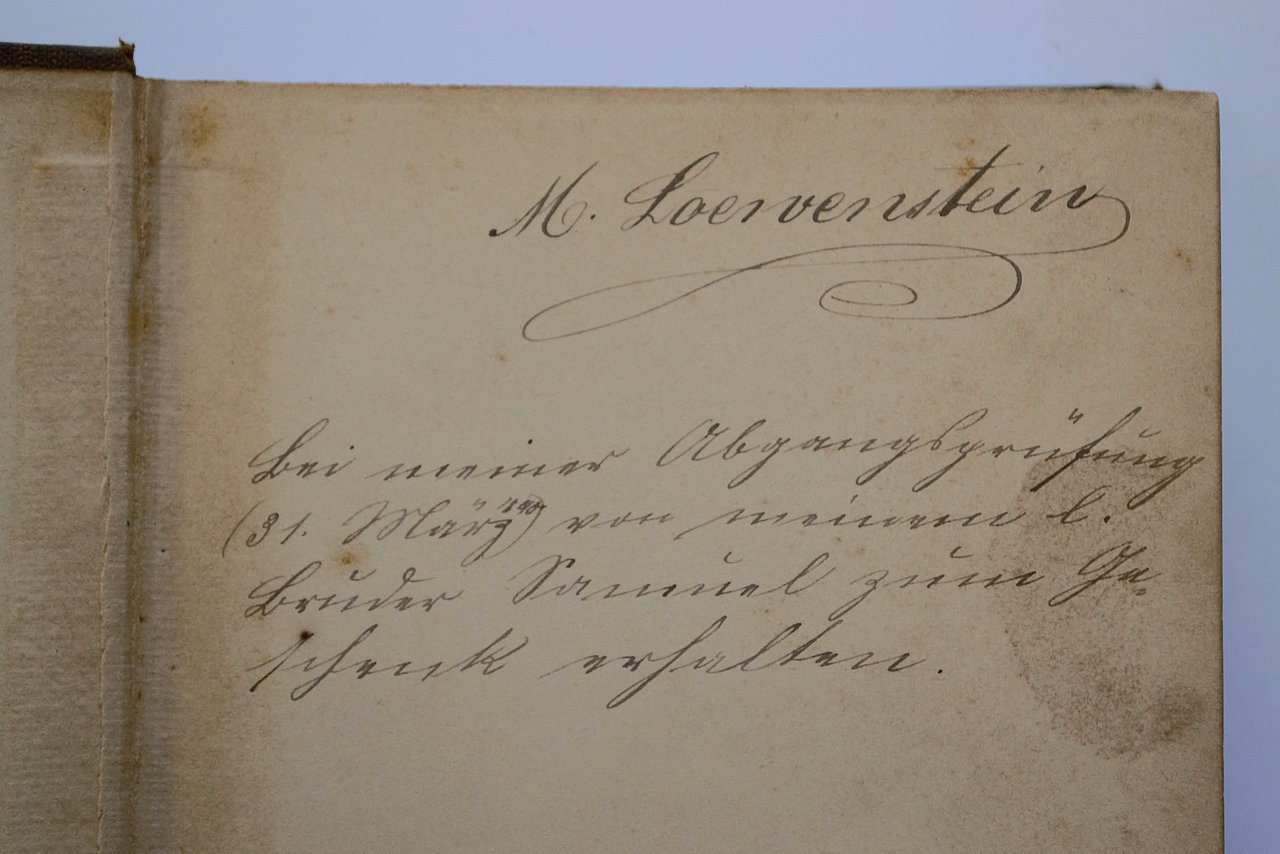 M. Loewenstein
Bei meiner Abgangsprüfung
(31. März) von meinem l.
Bruder Samuel zum Ge-
schenk erhalten.